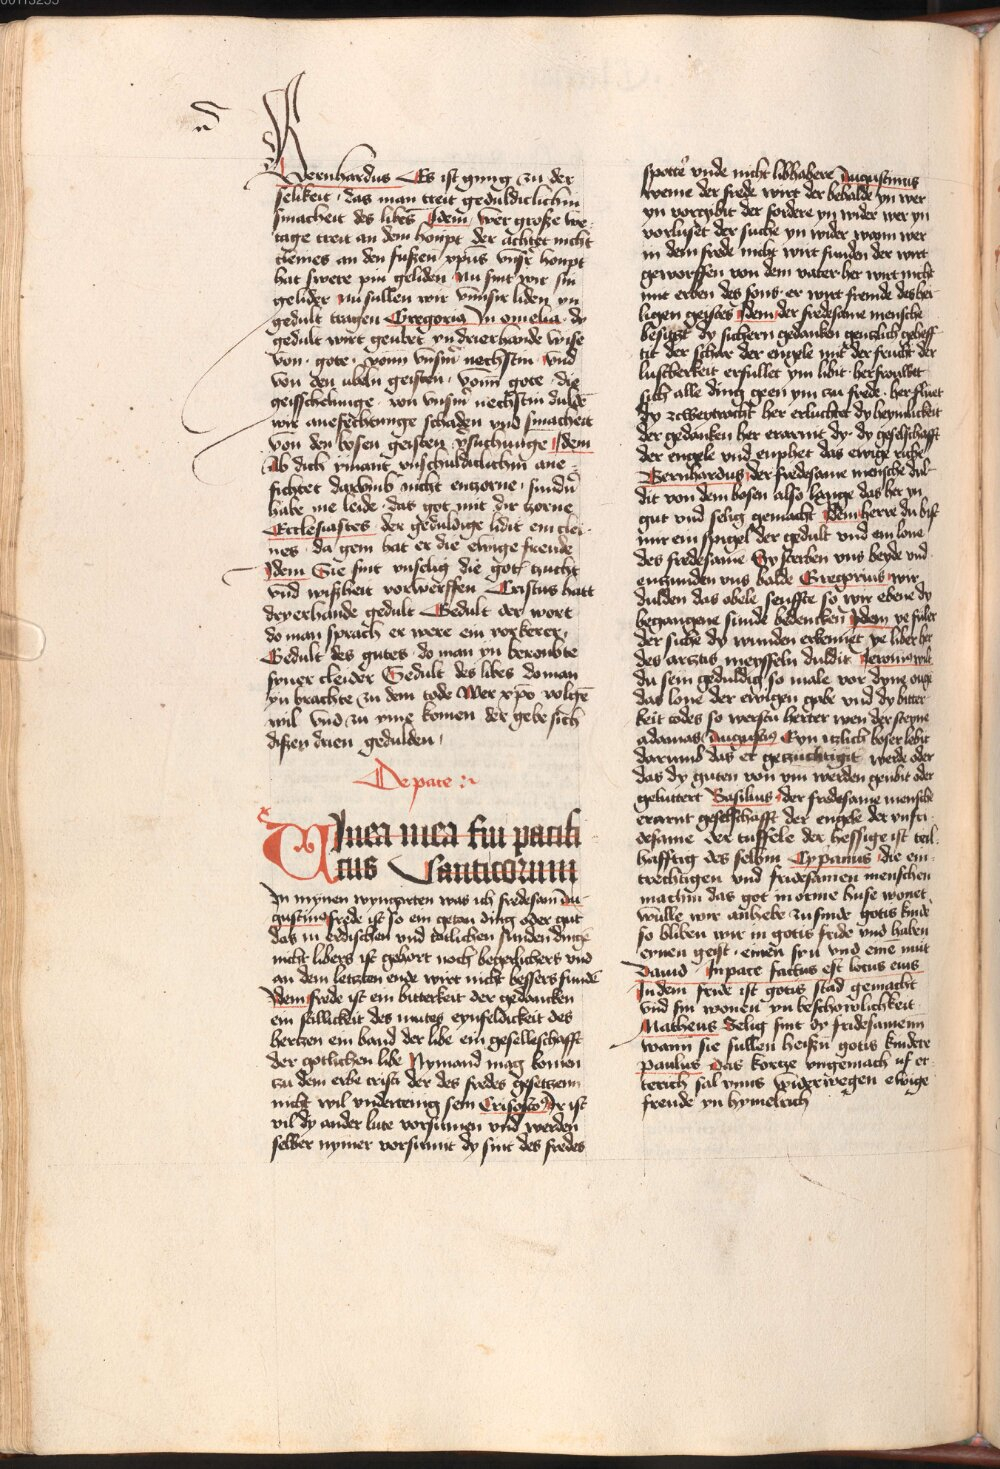 Bernhardus Es ist gnug zu der
selikeit das man treit gedulticlichin
smacheit des libes Idem wer große we
tage treit an dem houpt der achtet nicht
cleines an den fußen xpus vnsir houpt
hat swere pin geliden Nu sint wir sin
gelider Nu sullen wir vmmsir liden yn
gedult tragen Gregoriu In omelia dy
gedult wirt geubet yn drierhande wyse
von gote vonn vnsirm nechstin Vnd
von den ubeln geisten vonn gote die
geisschelunge von vnsirm nechstin dulde
wir anefechtunge schaden vnd smacheit
von den bosen geisten vsuchunge Idem
Ab dich ymant vnschuldiclichin ane
fichtet darvmb nicht enzorne sundir
habe me leide das got mit dir zorne
Ecclesiastes der geduldige lidit ein clei
nes da gein hat er die ewige freude
Idem Sie sint vnselig die gotz zucht
vnd wißheit vorwerffen Cristus hatt
dryerhande gedult Gedult der wort
do man sprach er were ein vorkerer
Gedult des gutes do man yn beroubte
syner cleider Gedult des libes do man
yn brachte zu dem tode Wer xpo volge
wil vnd zu yme komen der gebe sich
dißen drien gedulden
De pace
VInea mea fui pacifi
cus Canticorum
In mynen wyngarten was ich fredesam Au
gustinus frede ist so ein getan ding oder gut
das in erdischen vnd totlichen funden dinge
nicht libers ist gehort noch begerlichers vnd
an dem letzten ende wirt nicht bessers funde
Idem frede ist ein bitterkeit der gedancken
ein stillickeit des mutes eynfeldickeit des
hertzen ein band der libe ein geselleschafft
der gotlichen libe Nymand mag komen
zu dem erbe cristi der des fredes gesetzenn
nicht wil vndertenig sein Crisosto Dr ist
vil dy ander lute vorsunen vnd werden
selber nymer vorsunnt dy sint des fredes
spotter vnde nicht libhabere Augustinus
weme der frede wirt der behalde yn wer
yn vortribit der fordere yn wider wer yn
vorluset der suche yn wider wann wer
in dem frede nicht wirt funden der wirt
geworffen von dem vater her wirt nicht
mit erben des sons er wirt fremde des hei
ligen geistes Idem der fredesame mensche
besitzt dy sichern gedanken gentzlich geheff
tit der schar der engele mit der frucht der
lustberkeit erfullet ym libit her frouwet
sich alle ding geen ym zu frede her fluet
dy zcweytracht her erluchtet dy heymlickeit
der gedanken her erarnt dy dy geselschafft
der engele vnd enphet das ewige riche
Bernhardus der fredesame mensche dul
dit von dem bosen also lange das her yn
gut vnd selig gemacht Idem herre du bist
mir ein spigel der gedult vnd ein lone
des fredesame Dy sterben vns beyde vnd
entzunden vns balde Gregorius wir
dulden das obele senffte so wir ebene dy
begangene sunde bedencken Idem ye fuler
der siche dy wunden erkennet ye liber her
des arztis meysseln duldit Jeronimus wilt
du sein geduldig so male vor dyne ouge
das lone der ewigen gobe vnd dy bitter
keit todes so werstu herter wen der steyne
adamas Augustinus Eyn itzlich boser lebit
dorumb das er getzuchtigit werde oder
das dy guten von ym werden geubit oder
geluttert Basilius der fredesame mensche
erarnt geselschafft der engele der vnfri
desame der tuffele der hessige ist teil
hafftig des selbin Cyprianus die ein
trechtigen vnd fridesamen menschen
machin das got in orme huse wonet
wulle wir anhebe zu sinde gotis kinde
so bliben wir in gotis fride vnd haben
eynen geist einen syn vnd eine mut
Dauid In pace factus est locus eius
In dem fride ist gotis stad gemacht
vnd sin wonen yn beschowlichkeit
Matheus Selig sint dy fridesamenn
wann sie sullen heißn gotis kindere
Paulus Das kortze vngemach vf er
terich sal vnns widerwegen ewige
freude yn hymelrich